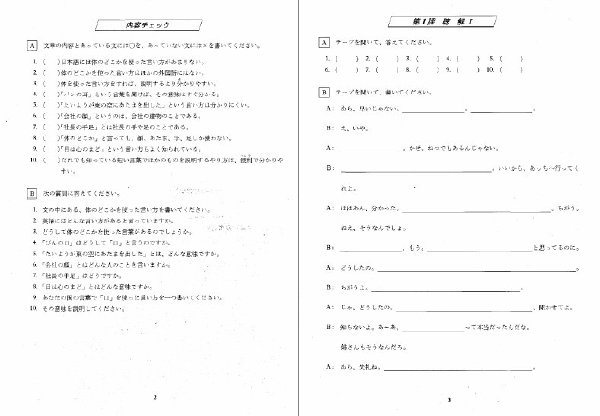 内容チェック
A 文章の内容とあっている文には○を、あっていない文には×を書いてください。
1. ( ) 日本語には体のどこかを使った言い方があまりない。
2. ( ) 体のどこかを使った言い方はほかの外国語にはない。
3. ( ) 体を使った言い方をすれば、説明するより分かりやすい。
4. ( ) 「パンの耳」という言葉を聞けば、その意味はすぐ分かる。
5. ( ) 「たいようが東の空にあたまを出した」という言い方は分かりにくい。
6. ( ) 「会社の顔」というのは、会社の建物のことである。
7. ( ) 「社長の手足」とは社長の手や足のことである。
8. ( ) 「体のどこか」と言っても、顔、あたま、手、足しか使わない。
9. ( ) 「目は心のまど」という言い方もよく知られている。
10. ( ) だれでも知っている短い言葉でほかのものを説明するやり方は、便利で分かりや
すい。
B 次の質問に答えてください。
1. 文の中にある、体のどこかを使った言い方を書いてください。
2. 英語にはどんな言い方があると言っていますか。
3. どうして体のどこかを使った言葉があるのでしょうか。
4. 「びんの口」はどうして「口」と言うのですか。
5. 「たいようが東の空にあたまを出した」とは、どんな意味ですか。
6. 「会社の顔」とはどんな人のことを言いますか。
7. 「社長の手足」はどうですか。
8. 「目は心のまど」とはどんな意味ですか。
9. あなたの国の言葉で「口」を使った言い方を一つ書いてください。
10. その意味を説明してください。
2
第1課 聴解 I
A テープを聞いて、答えてください。
1. ( ) 2. ( ) 3. ( ) 4. ( ) 5. ( )
6. ( ) 7. ( ) 8. ( ) 9. ( ) 10. ( )
B テープを聞いて、書いてください。
A: あら、早いじゃない。
B: え、いや。
A: 、かぜ、ねつでもあるんじゃない。
B: 、いいから、あっちへ行ってく
れよ。
A: ははあん、分かった。 ちがう。
ねえ、そうなんでしょ。
B: 、もう。 と思ってるのに。
A: どうしたの。
B: ちがうよ。
A: じゃ、どうしたの。 、聞かせてよ。
B: 知らないよ。あーあ、 って本当だったんだな。
姉さんもそうなんだろ。
A: あら、失礼ね。
3